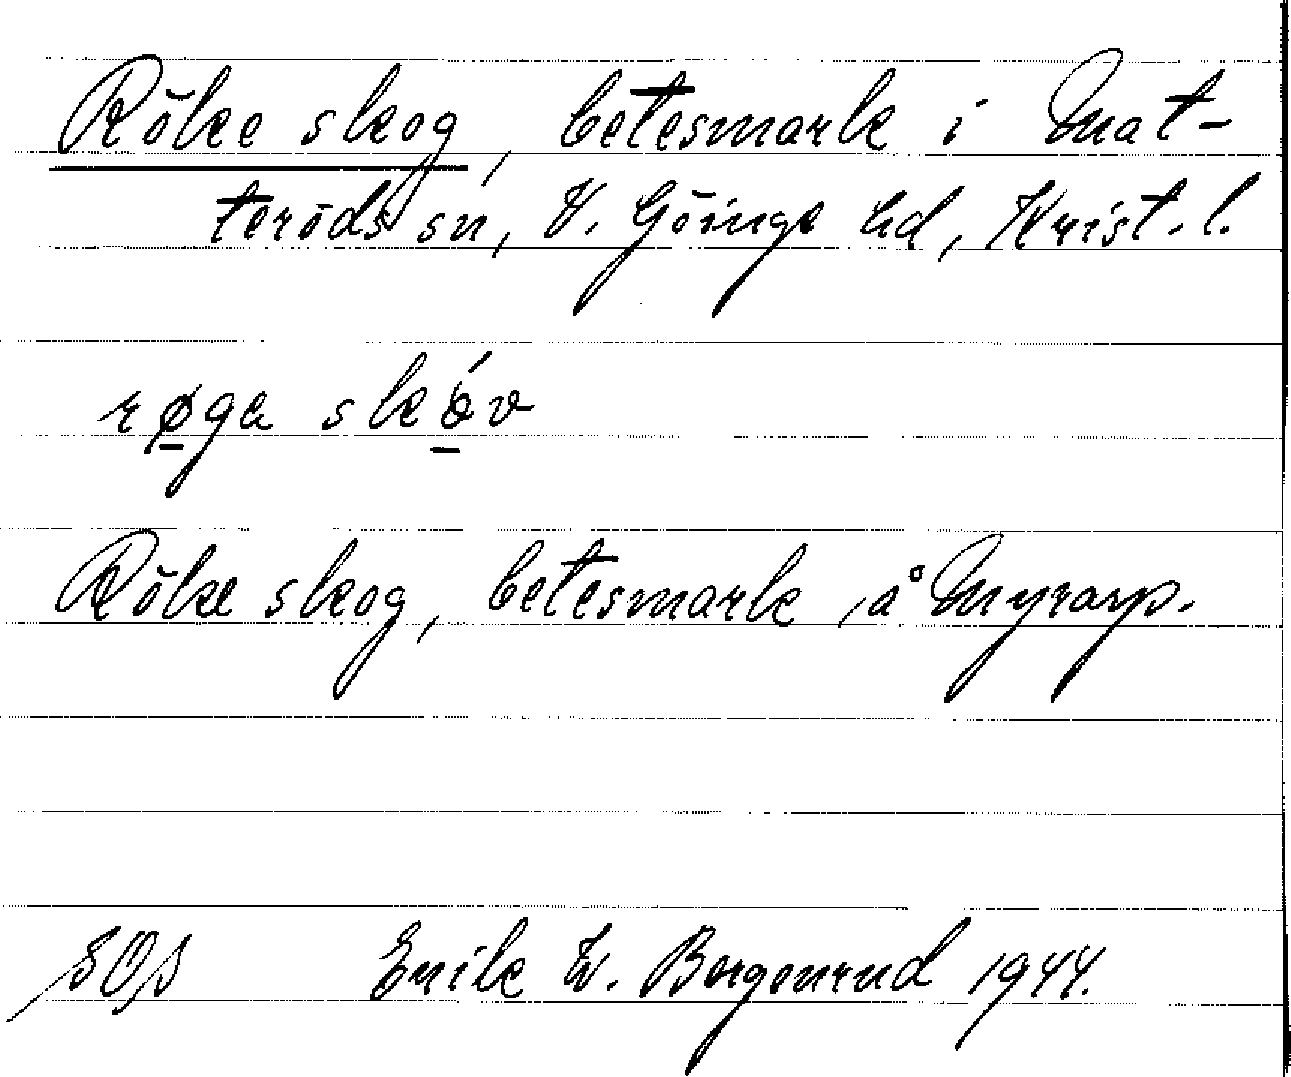 Röke skog, betesmark i Mat-
teröds sn, V. Göinge hd, Krist. l.
røga skóv
Röke skog, betesmark å Myrarp.
Erik W. Bergenrud 1944.